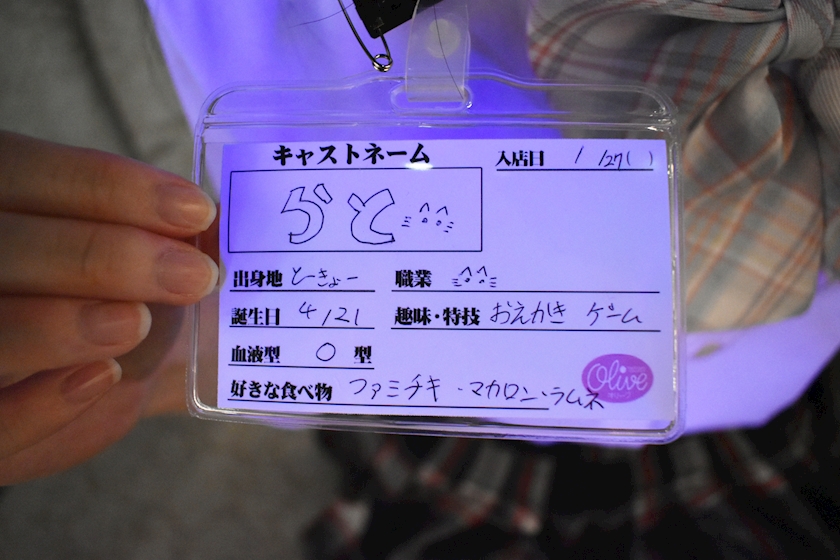 キャストネーム
入店日 1/27( )
らて
出身地 とーきょー
職業
誕生日 4/21
趣味・特技 おえかき ゲーム
血液型 O 型
好きな食べ物 ファミチキ・マカロン・ラムネ
Olive